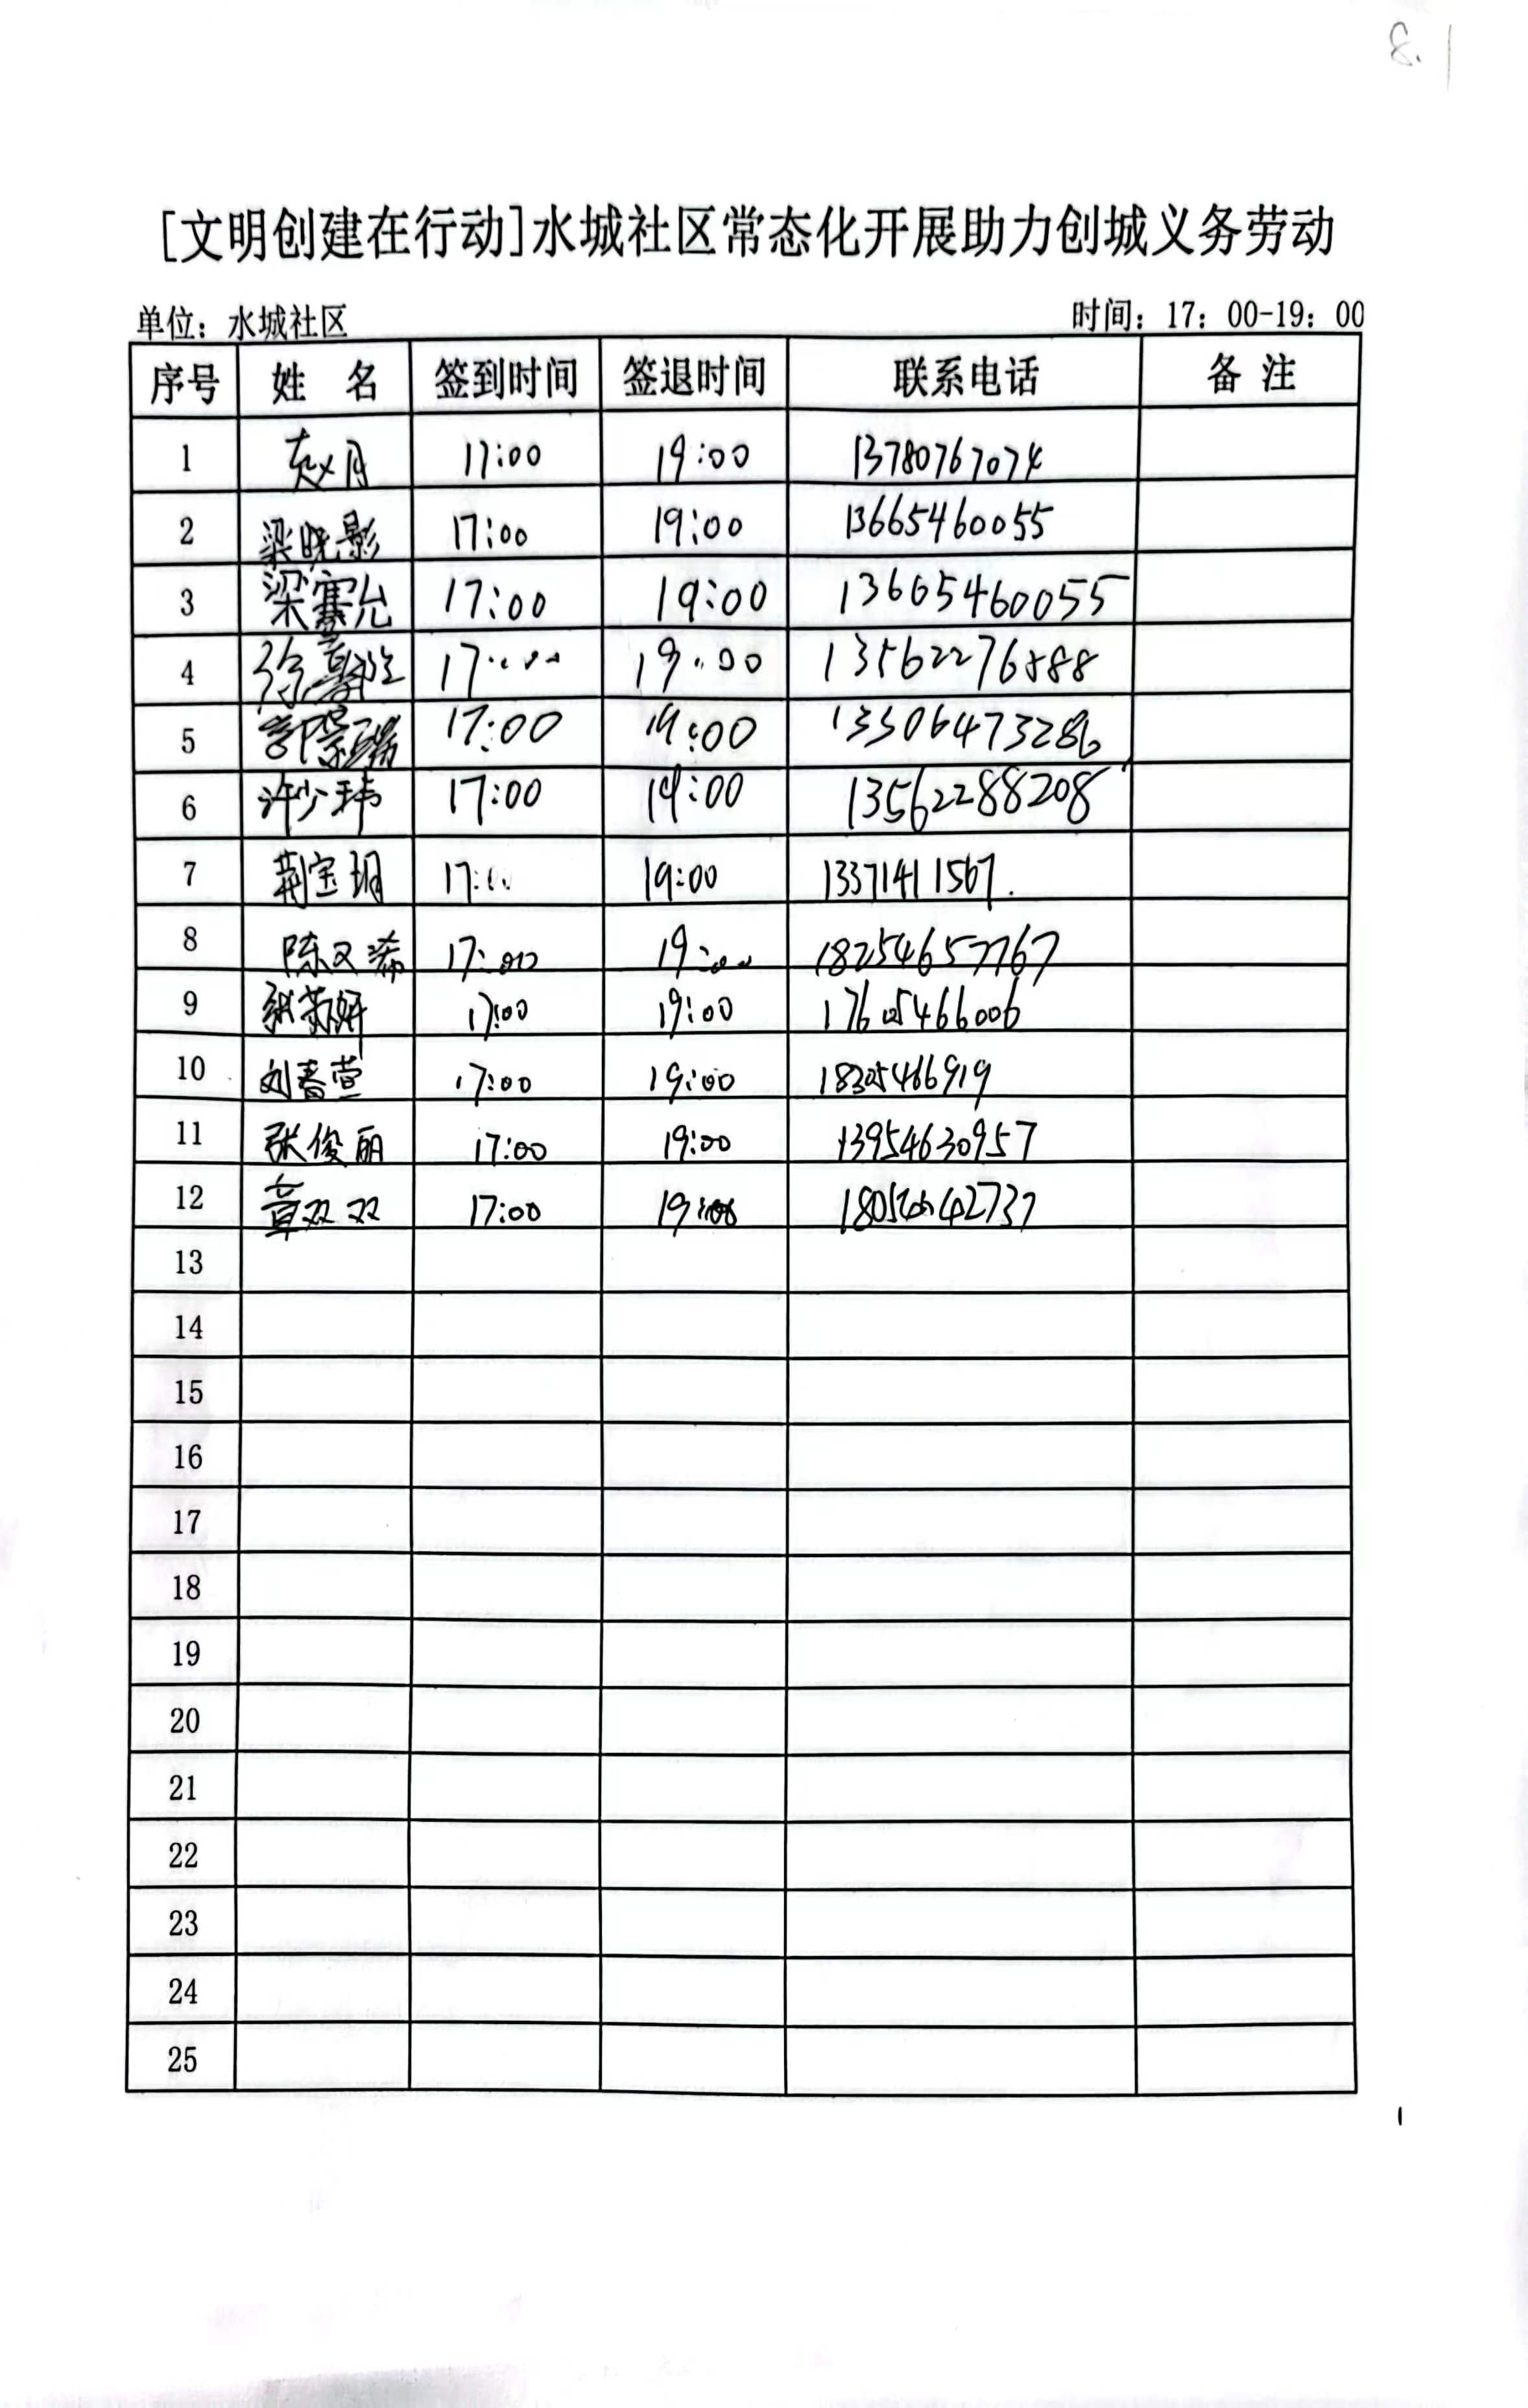 8.1
[文明创建在行动]水城社区常态化开展助力创城义务劳动
单位：水城社区 时间：17：00-19：00
序号 姓 名 签到时间 签退时间 联系电话 备 注
1 赵月 17:00 19:00 13780767074
2 梁晓影 17:00 19:00 13665460055
3 梁寨允 17:00 19:00 13665460055
4 徐 17:00 19:00 13562276888
5 郭景瑞 17:00 19:00 13306473286
6 许少玮 17:00 19:00 13562288208
7 荆宝玥 17:00 19:00 13371411567.
8 陈又浠 17:00 19:00 18254657767
9 张蓉妍 17:00 19:00 17605466006
10 刘春萱 17:00 19:00 18305466919
11 张俊丽 17:00 19:00 13954630957
12 章双双 17:00 19:00 18054642737
13
14
15
16
17
18
19
20
21
22
23
24
25
1